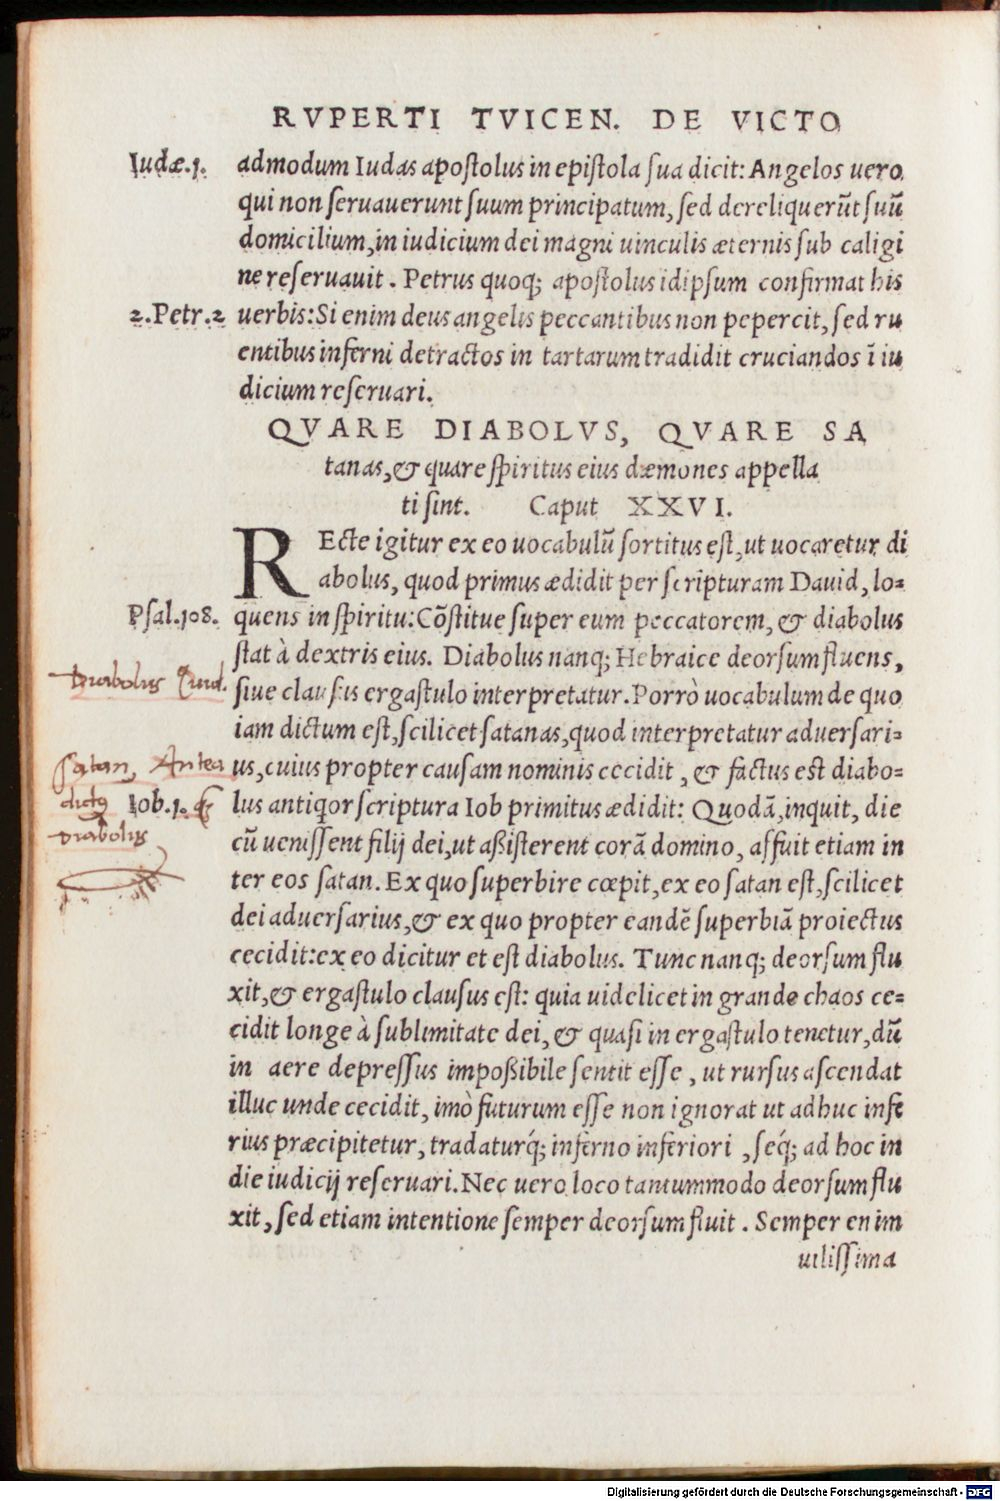 RVPERTI TVICEN. DE VICTO
Iudæ.1. admodum Iudas apostolus in epistola sua dicit: Angelos vero
qui non seruauerunt suum principatum, sed dereliquerūt suū
domicilium, in iudicium dei magni uinculis æternis sub caligi
ne reseruauit. Petrus quoq; apostolus idipsum confirmat his
2.Petr.2 uerbis: Si enim deus angelis peccantibus non pepercit, sed ru
entibus inferni detractos in tartarum tradidit cruciandos ī iu
dicium reseruari.
QVARE DIABOLVS, QVARE SA
tanas, & quare spiritus eius dæmones appella
ti sint. Caput XXVI.
REcte igitur ex eo uocabulū sortitus est, ut uocaretur di
abolus, quod primus ædidit per scripturam Dauid, lo=
Psal.108. quens in spiritu: Cōstitue super eum peccatorem, & diabolus
stat à dextris eius. Diabolus nanq; Hebraice deorsum fluens,
Diabolus Quid.
siue clausus ergastulo interpretatur. Porrò uocabulum de quo
iam dictum est, scilicet satanas, quod interpretatur aduersari=
Satan Antea
us, cuius propter causam nominis cecidit, & factus est diabo=
Iob.1. lus antiqor scriptura Iob primitus ædidit: Quodā, inquit, die
Diabolus
cū uenissent filij dei, ut aßisterent corā domino, affuit etiam in
ter eos satan. Ex quo superbire cœpit, ex eo satan est, scilicet
dei aduersarius, & ex quo propter eandē superbiā proiectus
cecidit: ex eo dicitur et est diabolus. Tunc nanq; deorsum flu
xit, & ergastulo clausus est: quia uidelicet in grande chaos ce=
cidit longe à sublimitate dei, & quasi in ergastulo tenetur, dū
in aere depressus impoßibile sentit esse, ut rursus ascendat
illuc unde cecidit, imò futurum esse non ignorat ut adhuc infe
rius præcipitetur, tradaturq́; inferno inferiori, seq́; ad hoc in
die iudicij reseruari. Nec uero loco tantummodo deorsum flu
xit, sed etiam intentione semper deorsum fluit. Semper enim
uilissima
Digitalisierung gefördert durch die Deutsche Forschungsgemeinschaft - DFG